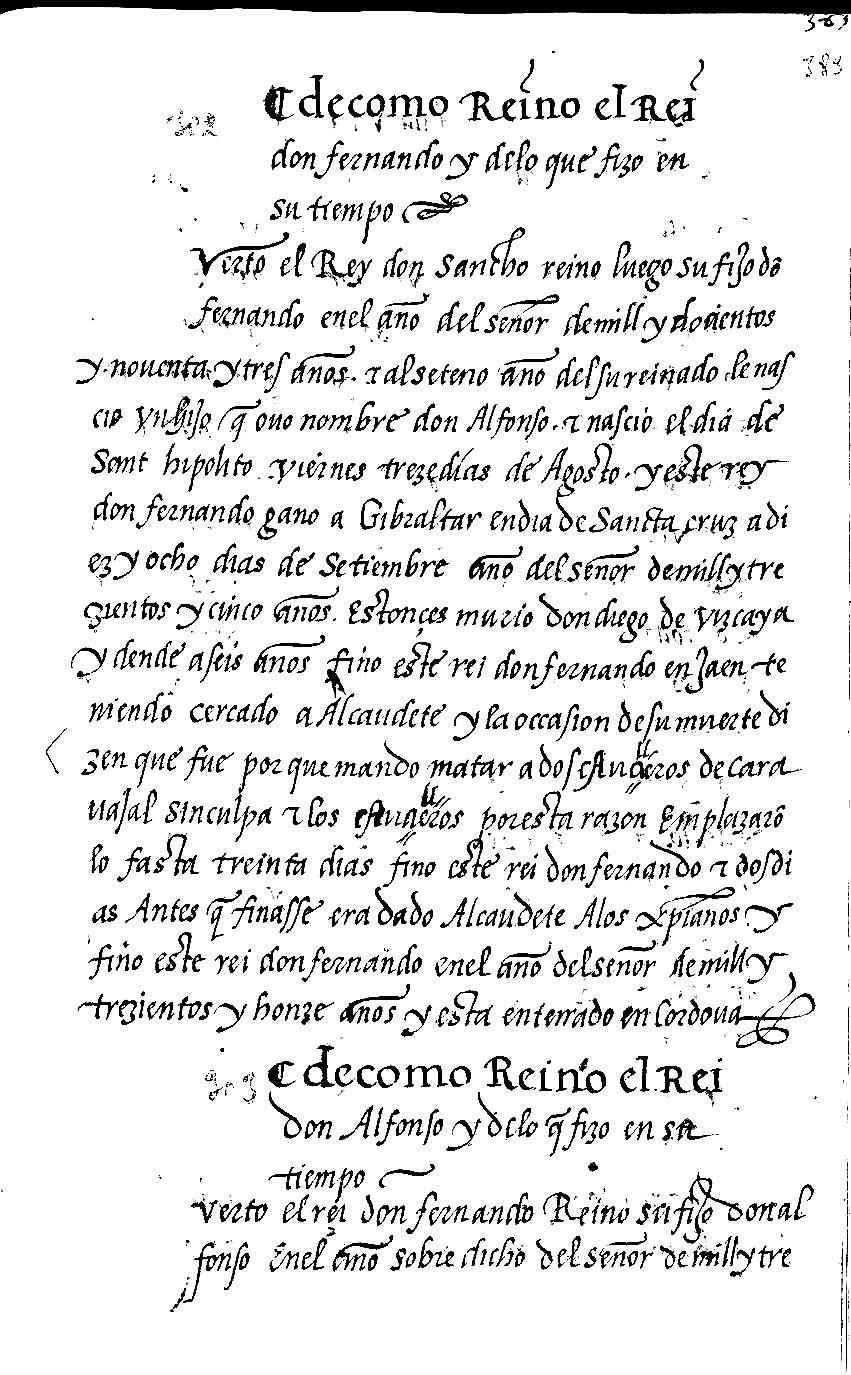 363
383
302
de como Reino el Rei
don fernando y de lo que fizo en
su tiempo
Verto el Rey don Sancho reino luego su fijo dō
fernando en el año del señor de mill y docientos
y noventa y tres años. & al seteno año del su reinado le nas
cio vn hijo q̄ ouo nombre don Alfonso. & nascio el dia de
Sant hipolito viernes treze dias de Agosto. y este rey
don fernando gano a Gibraltar en dia de Sancta cruz a di
ez y ocho dias de Setiembre año del señor de mill y tre
zientos y cinco años. Estonces murio don diego de vizcaya
y dende a seis años fino este rei don fernando en Jaen te
niendo cercado a Alcaudete y la occasion de su muerte di
zen que fue porque mando matar a dos escuderos de cara
uajal sin culpa & los escuderos por esta razon Emplazarō
lo fasta treinta dias fino este rei don fernando & dos di
as Antes q̄ finasse era dado Alcaudete A los xp̄ianos y
fino este rei don fernando en el año del señor de mill y
trezientos y honze años y esta enterrado en Cordoua
303
de como Reino el Rei
don Alfonso y de lo q̄ fizo en su
tiempo
verto el rei don fernando Reino su fijo don al
fonso En el año sobre dicho del señor de mill y tre